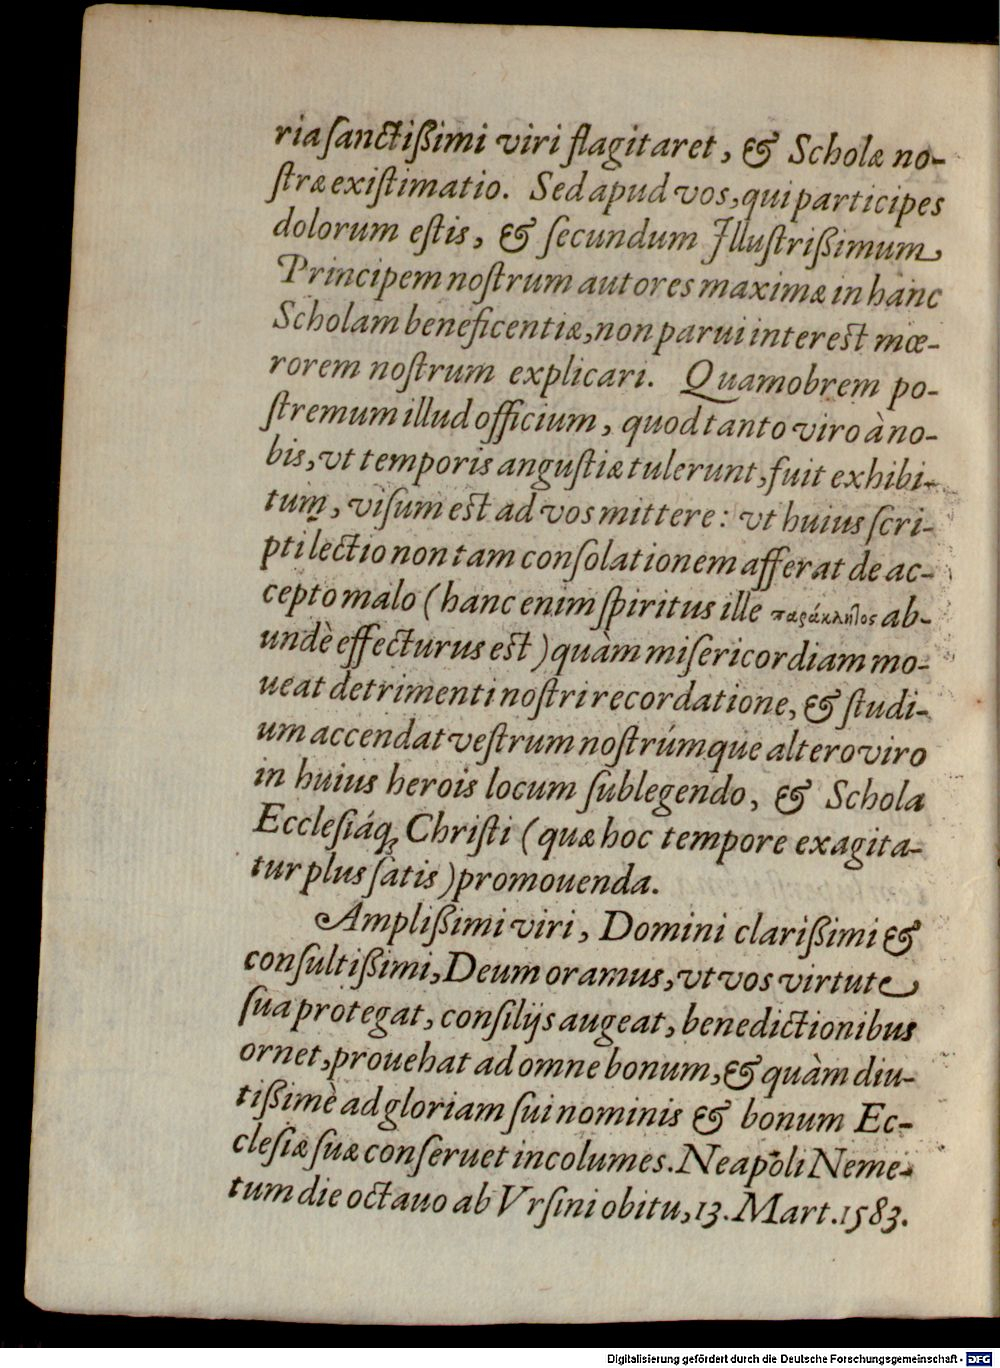 ria ſanctißimi viri flagitaret, & Scholæ no-
ſtræ exiſtimatio. Sed apud vos, qui participes
dolorum eſtis, & ſecundum Illuſtrißimum
Principem noſtrum autores maximæ in hanc
Scholam beneficentiæ, non parui intereſt mœ-
rorem noſtrum explicari. Quamobrem po-
ſtremum illud officium, quod tanto viro à no-
bis, vt temporis anguſtiæ tulerunt, fuit exhibi-
tum, viſum eſt ad vos mittere: vt huius ſcri-
pti lectio non tam conſolationem afferat de ac-
cepto malo (hanc enim ſpiritus ille παράκλητος ab-
undè effecturus eſt) quàm miſericordiam mo-
ueat detrimenti noſtri recordatione, & ſtudi-
um accendat veſtrum noſtrúmque altero viro
in huius herois locum ſublegendo, & Schola
Eccleſiáq; Chriſti (quæ hoc tempore exagita-
tur plus ſatis) promouenda.
Amplißimi viri, Domini clarißimi &
conſultißimi, Deum oramus, vt vos virtute
ſua protegat, conſilijs augeat, benedictionibus
ornet, prouehat ad omne bonum, & quàm diu-
tißimè ad gloriam ſui nominis & bonum Ec-
cleſiæ ſuæ conſeruet incolumes. Neapoli Neme-
tum die octauo ab Vrſini obitu, 13. Mart. 1583.
Digitalisierung gefördert durch die Deutsche Forschungsgemeinschaft - DFG